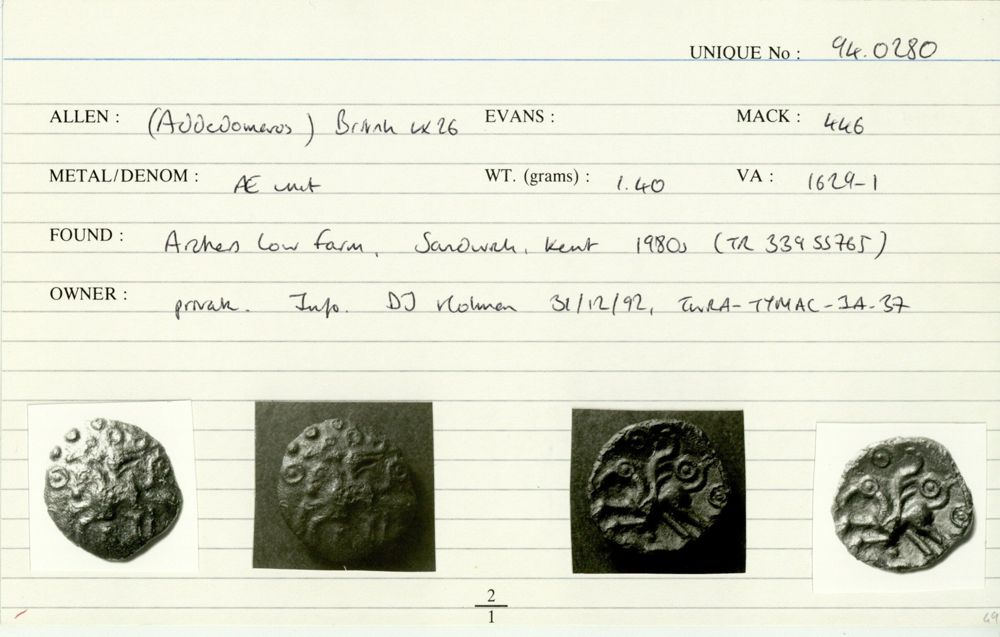 UNIQUE No : 94.0280
ALLEN : (Addedomaros) British LX26 EVANS : MACK : 446
METAL/DENOM : Æ unit WT. (grams) : 1.40 VA : 1629-1
FOUND : Archers Low Farm, Sandwich, Kent 1980s (TR 339 55765)
OWNER : private. Info. DJ Holman 31/12/92, -TYMAC-IA-37
2
1